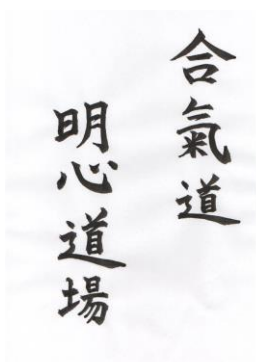 合氣道
明心道場